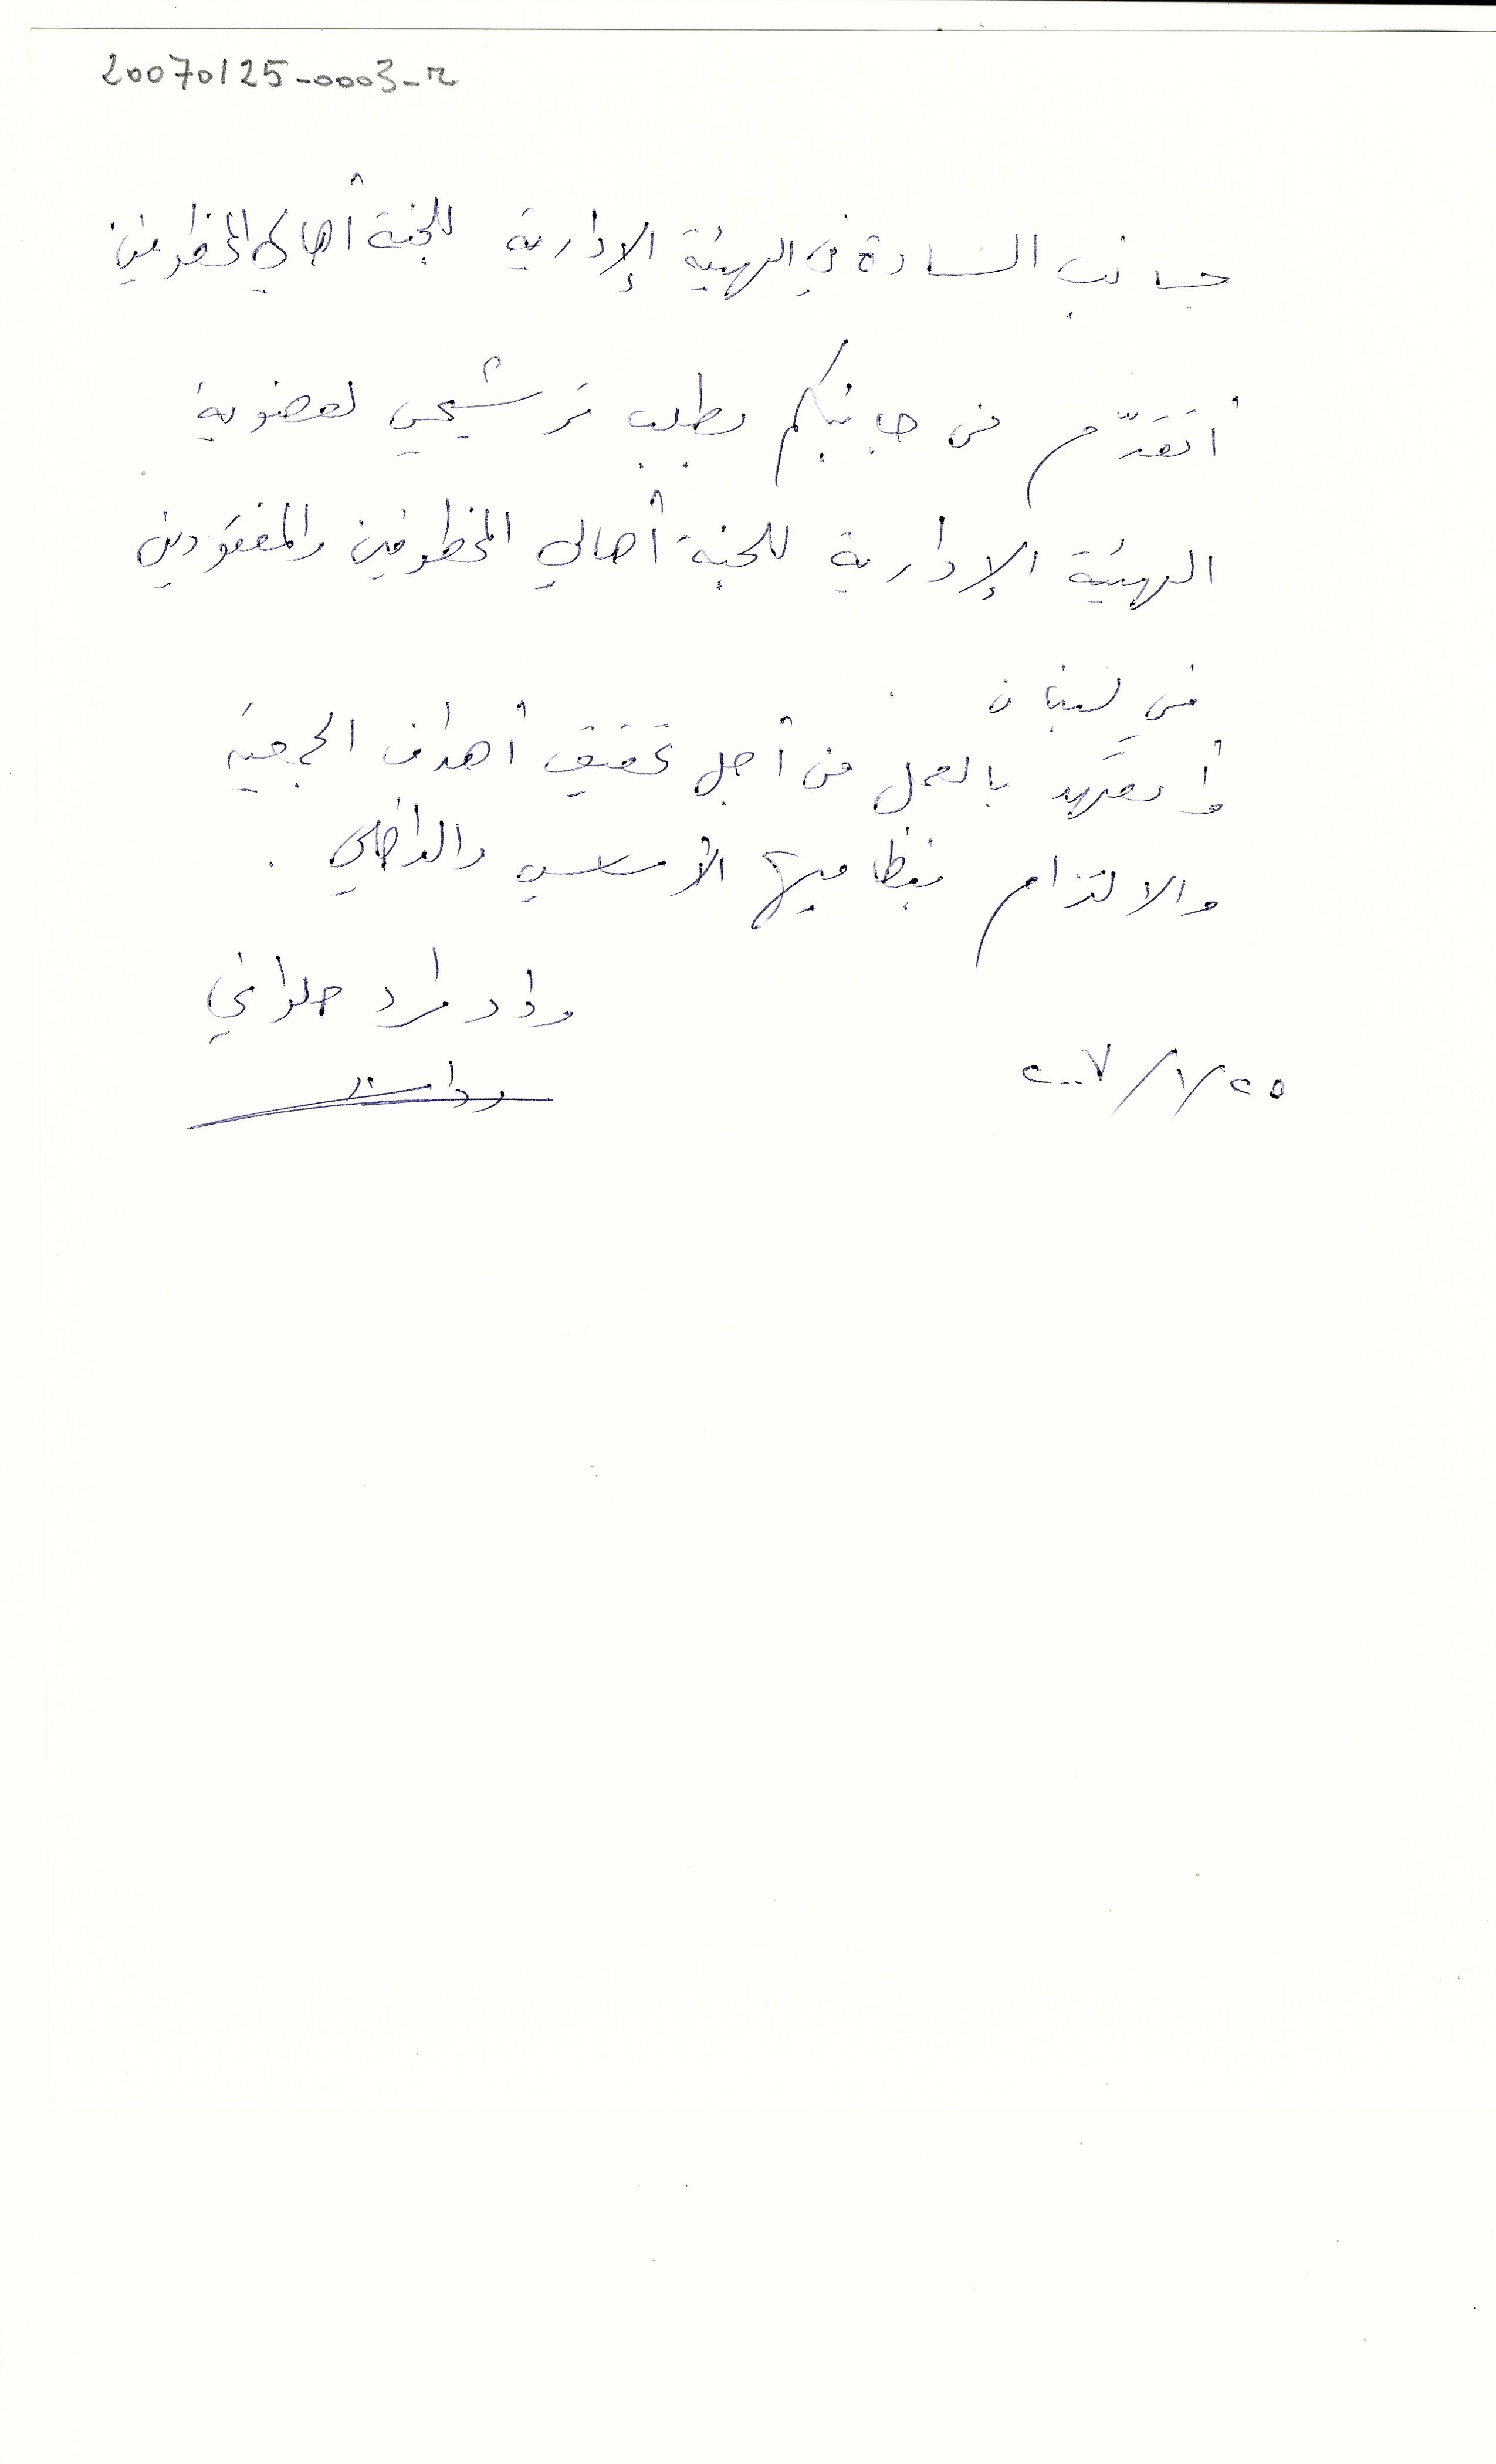 20070125-0003-r
جانب السادة في الهيئة الإدارية للجنة أهالي المخطوفين
أتقدّم من جانبكم بطلب ترشيحي لعضوية
الهيئة الإدارية للجنة أهالي المخطوفين والمفقودين
في لبنان.
وأتعهّد بالعمل من أجل تحقيق أهداف الجمعية
والالتزام بنظاميها الأساسي والداخلي.
وداد مراد حلواني
٢٥/١/٢٠٠٧